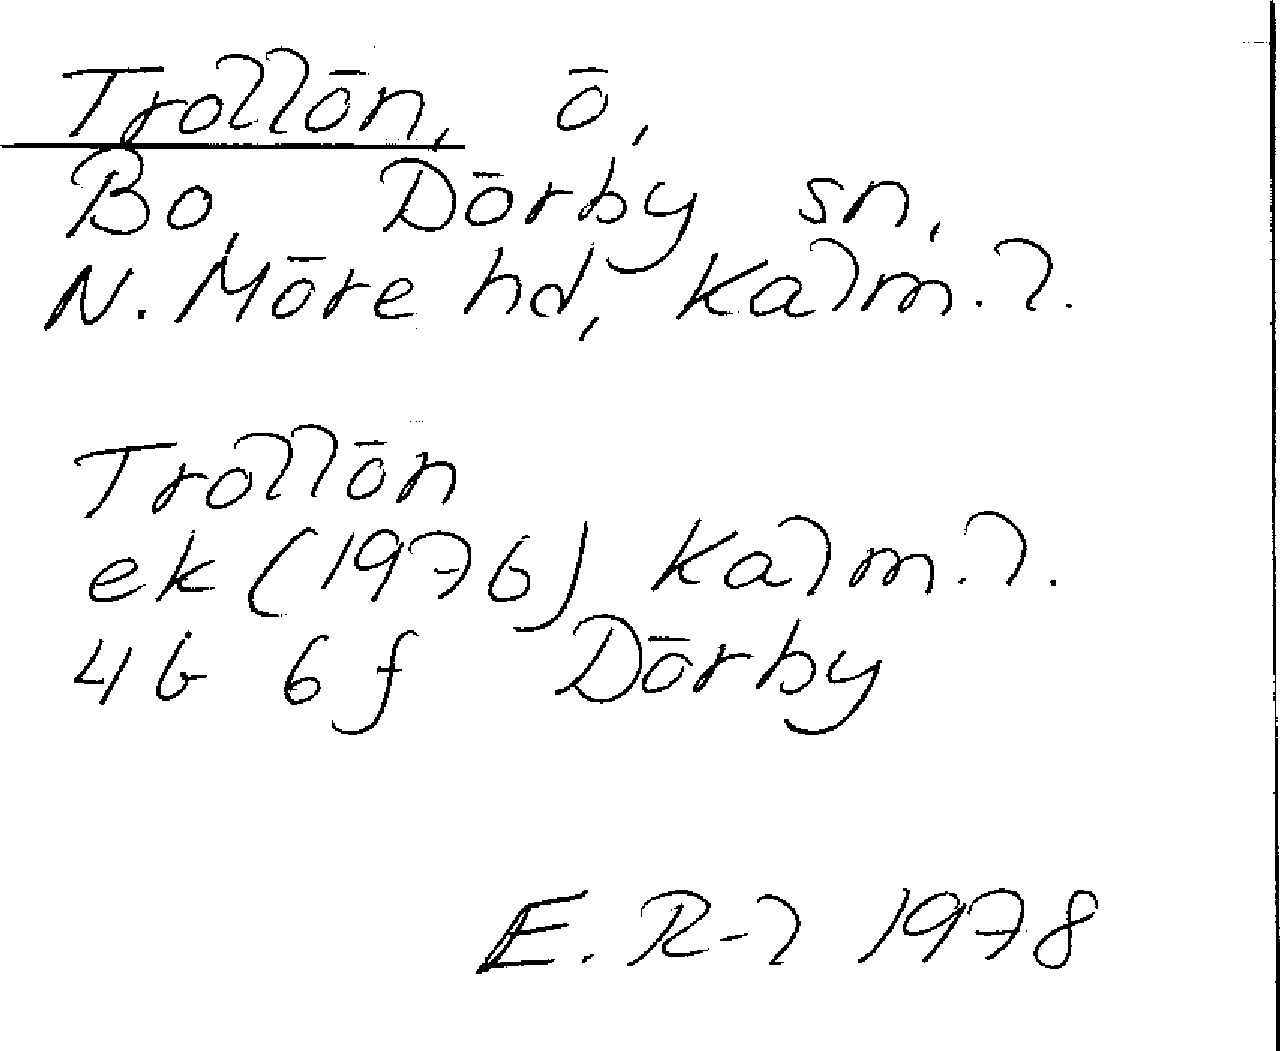 Trollön, ö,
Bo, Dörby sn,
N. Möre hd, Kalm. l.
Trollön
ek (1976) Kalm. l.
4G 6f Dörby
E. R-l 1978